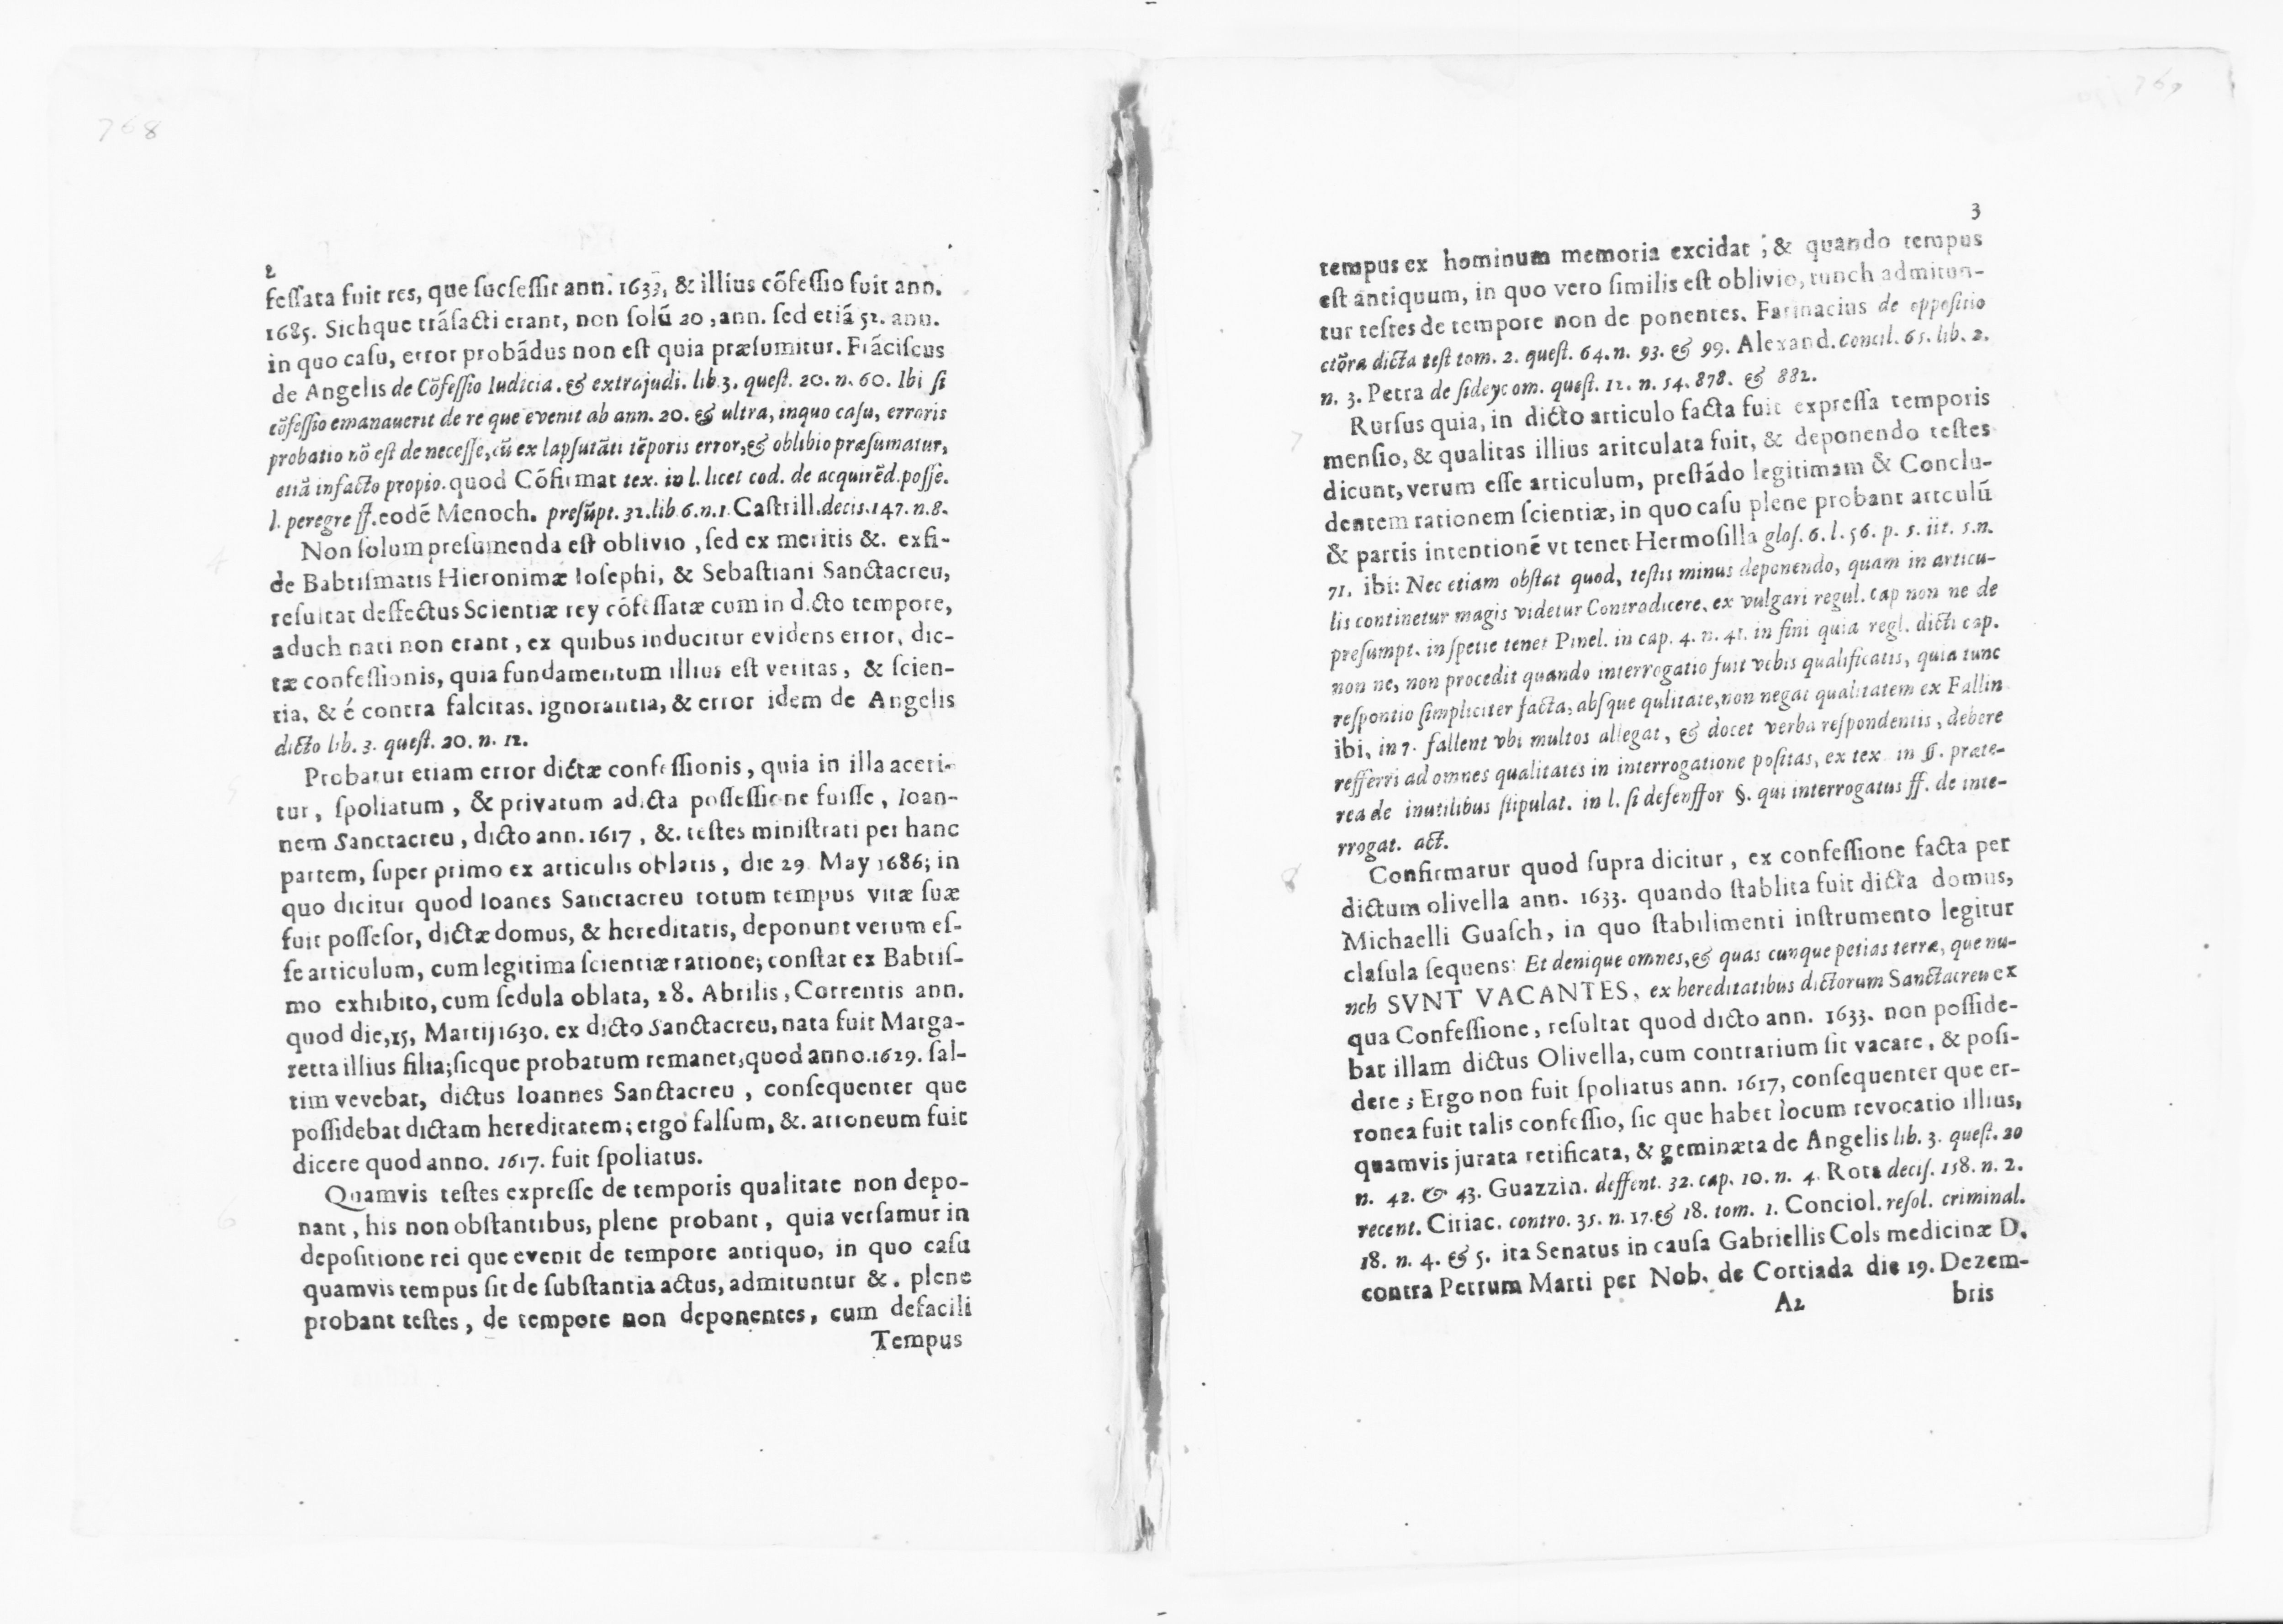 768
2
feſſata fuit res, que ſucſeſſit ann. 1633, & illius cõfeſſio fuit ann.
1685. Sichque trãſacti erant, non ſolũ 20, ann. ſed etiã 52. ann.
in quo caſu, error probãdus non eſt quia præſumitur. Frãciſcus
de Angelis de Cõfeſſio Iudicia. & extrajudi. lib. 3. queſt. 20. n. 60. Ibi ſi
cõfeſſio emanauerit de re que evenit ab ann. 20. & ultra, inquo caſu, erroris
probatio nõ eſt de neceſſe, cũ ex lapſutãti tẽporis error, & oblibio præſumatur,
etiã infacto propio. quod Cõfirmat tex. in l. licet cod. de acquirẽd. poſſe.
l. peregre ff. eodẽ Menoch. preſũpt. 32. lib. 6. n. 1. Caſtrill. decis. 147. n. 8.
Non ſolum preſumenda eſt oblivio, ſed ex meritis &. exfi-
de Babtiſmatis Hieronimæ Ioſephi, & Sebaſtiani Sanctacreu,
reſultat deffectus Scientiæ rey cõfeſſatæ cum in dicto tempore,
aduch nati non erant, ex quibus inducitur evidens error, dic-
tæ confeſſionis, quia fundamentum illius eſt veritas, & ſcien-
tia, & é contra falcitas. ignorantia, & error idem de Angelis
dicto lib. 3. queſt. 20. n. 12.
Probatur etiam error dictæ confeſſionis, quia in illa aceri-
tur, ſpoliatum, & privatum adicta poſſeſſione fuiſſe, Ioan-
nem Sanctacreu, dicto ann. 1617, &. teſtes miniſtrati per hanc
partem, ſuper primo ex articulis oblatis, die 29. May 1686; in
quo dicitur quod Ioanes Sanctacreu totum tempus vitæ ſuæ
fuit poſſeſor, dictæ domus, & hereditatis, deponunt verum eſ-
ſe articulum, cum legitima ſcientiæ ratione; conſtat ex Babtiſ-
mo exhibito, cum ſedula oblata, 28. Abrilis, Correntis ann.
quod die, 15, Martij 1630. ex dicto Sanctacreu, nata fuit Marga-
retta illius filia; ſicque probatum remanet, quod anno. 1629. ſal-
tim vevebat, dictus Ioannes Sanctacreu, conſequenter que
poſſidebat dictam hereditatem; ergo falſum, &. arroneum fuit
dicere quod anno. 1617. fuit ſpoliatus.
Quamvis teſtes expreſſe de temporis qualitate non depo-
nant, his non obſtantibus, plene probant, quia verſamur in
depoſitione rei que evenit de tempore antiquo, in quo caſu
quamvis tempus ſit de ſubſtantia actus, admituntur &. plene
probant teſtes, de tempore non deponentes, cum defacili
Tempus
3
tempus ex hominum memoria excidat; & quando tempus
eſt antiquum, in quo vero ſimilis eſt oblivio, tunch admitun-
tur teſtes de tempore non de ponentes. Farinacius de oppoſitio
ctõra dicta teſt tom. 2. queſt. 64. n. 93. & 99. Alexand. Concil. 65. lib. 2.
n. 3. Petra de fideyc om. queſt. 12. n. 54. 878. & 882.
Rurſus quia, in dicto articulo facta fuit expreſſa temporis
menſio, & qualitas illius aritculata fuit, & deponendo teſtes
dicunt, verum eſſe articulum, preſtãdo legitimam & Conclu-
dentem rationem ſcientiæ, in quo caſu plene probant artculũ
& partis intentionẽ vt tenet Hermoſilla gloſ. 6. l. 56. p. 5. iit. 5. n.
71. ibi: Nec etiam obſtat quod, teſtis minus deponendo, quam in articu-
lis continetur magis videtur Contradicere, ex vulgari regul. cap non ne de
preſumpt. in ſpetie tenet Pinel. in cap. 4. n. 41. in fini quia regl. dicti cap.
non ne, non procedit quando interrogatio fuit vebis qualificatis, quia tunc
reſpontio ſimpliciter facta, abſque qulitate, non negat qualitatem ex Fallin
ibi, in 7. fallent vbi multos allegat, & docet verba reſpondentis, debere
refferri ad omnes qualitates in interrogatione poſitas, ex tex. in §. præte-
rea de inutilibus ſtipulat. in l. ſi defenffor §. qui interrogatus ff. de inte-
rrogat. act.
Confirmatur quod ſupra dicitur, ex confeſſione facta per
dictum olivella ann. 1633. quando ſtablita fuit dicta domus,
Michaelli Guaſch, in quo ſtabilimenti inſtrumento legitur
claſula ſequens: Et denique omnes, & quas cunque petias terræ, que nu-
nch SVNT VACANTES, ex hereditatibus dictorum Sanctacreu ex
qua Confeſſione, reſultat quod dicto ann. 1633. non poſſide-
bat illam dictus Olivella, cum contrarium ſit vacare, & poſi-
dere; Ergo non fuit ſpoliatus ann. 1617, conſequenter que er-
ronea fuit talis confeſſio, ſic que habet locum revocatio illius,
quamvis jurata retificata, & geminæta de Angelis lib. 3. queſt. 20
n. 42. & 43. Guazzin. deffent. 32. cap. 10. n. 4. Rota deciſ. 158. n. 2.
recent. Ciriac. contro. 35. n. 17. & 18. tom. 1. Conciol. reſol. criminal.
18. n. 4. & 5. ita Senatus in cauſa Gabriellis Cols medicinæ D.
contra Petrum Marti per Nob. de Cortiada die 19. Dezem-
A2 bris